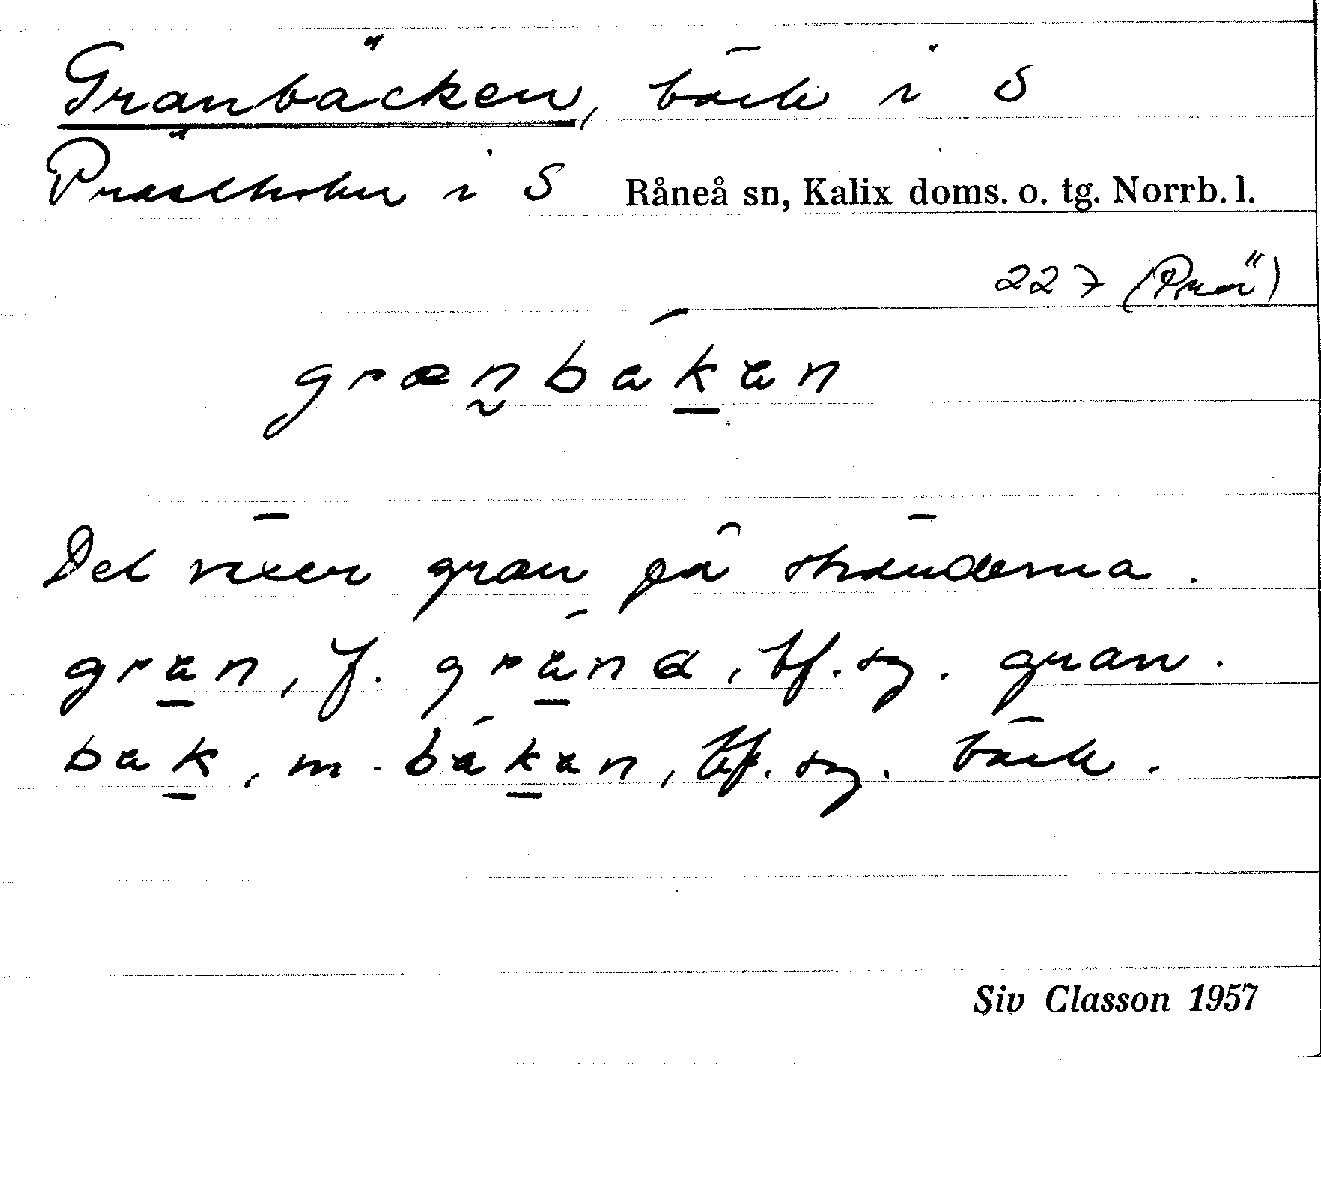 Granbäcken, bäck i S
Prästholm i S Råneå sn, Kalix doms. o. tg. Norrb. l.
227 (Prä)
grænbákan
Det växer gran på stränderna.
gran, f. grána, bf. sg. gran.
bak, m. bákan, bf. sg. bäck.
Siv Classon 1957